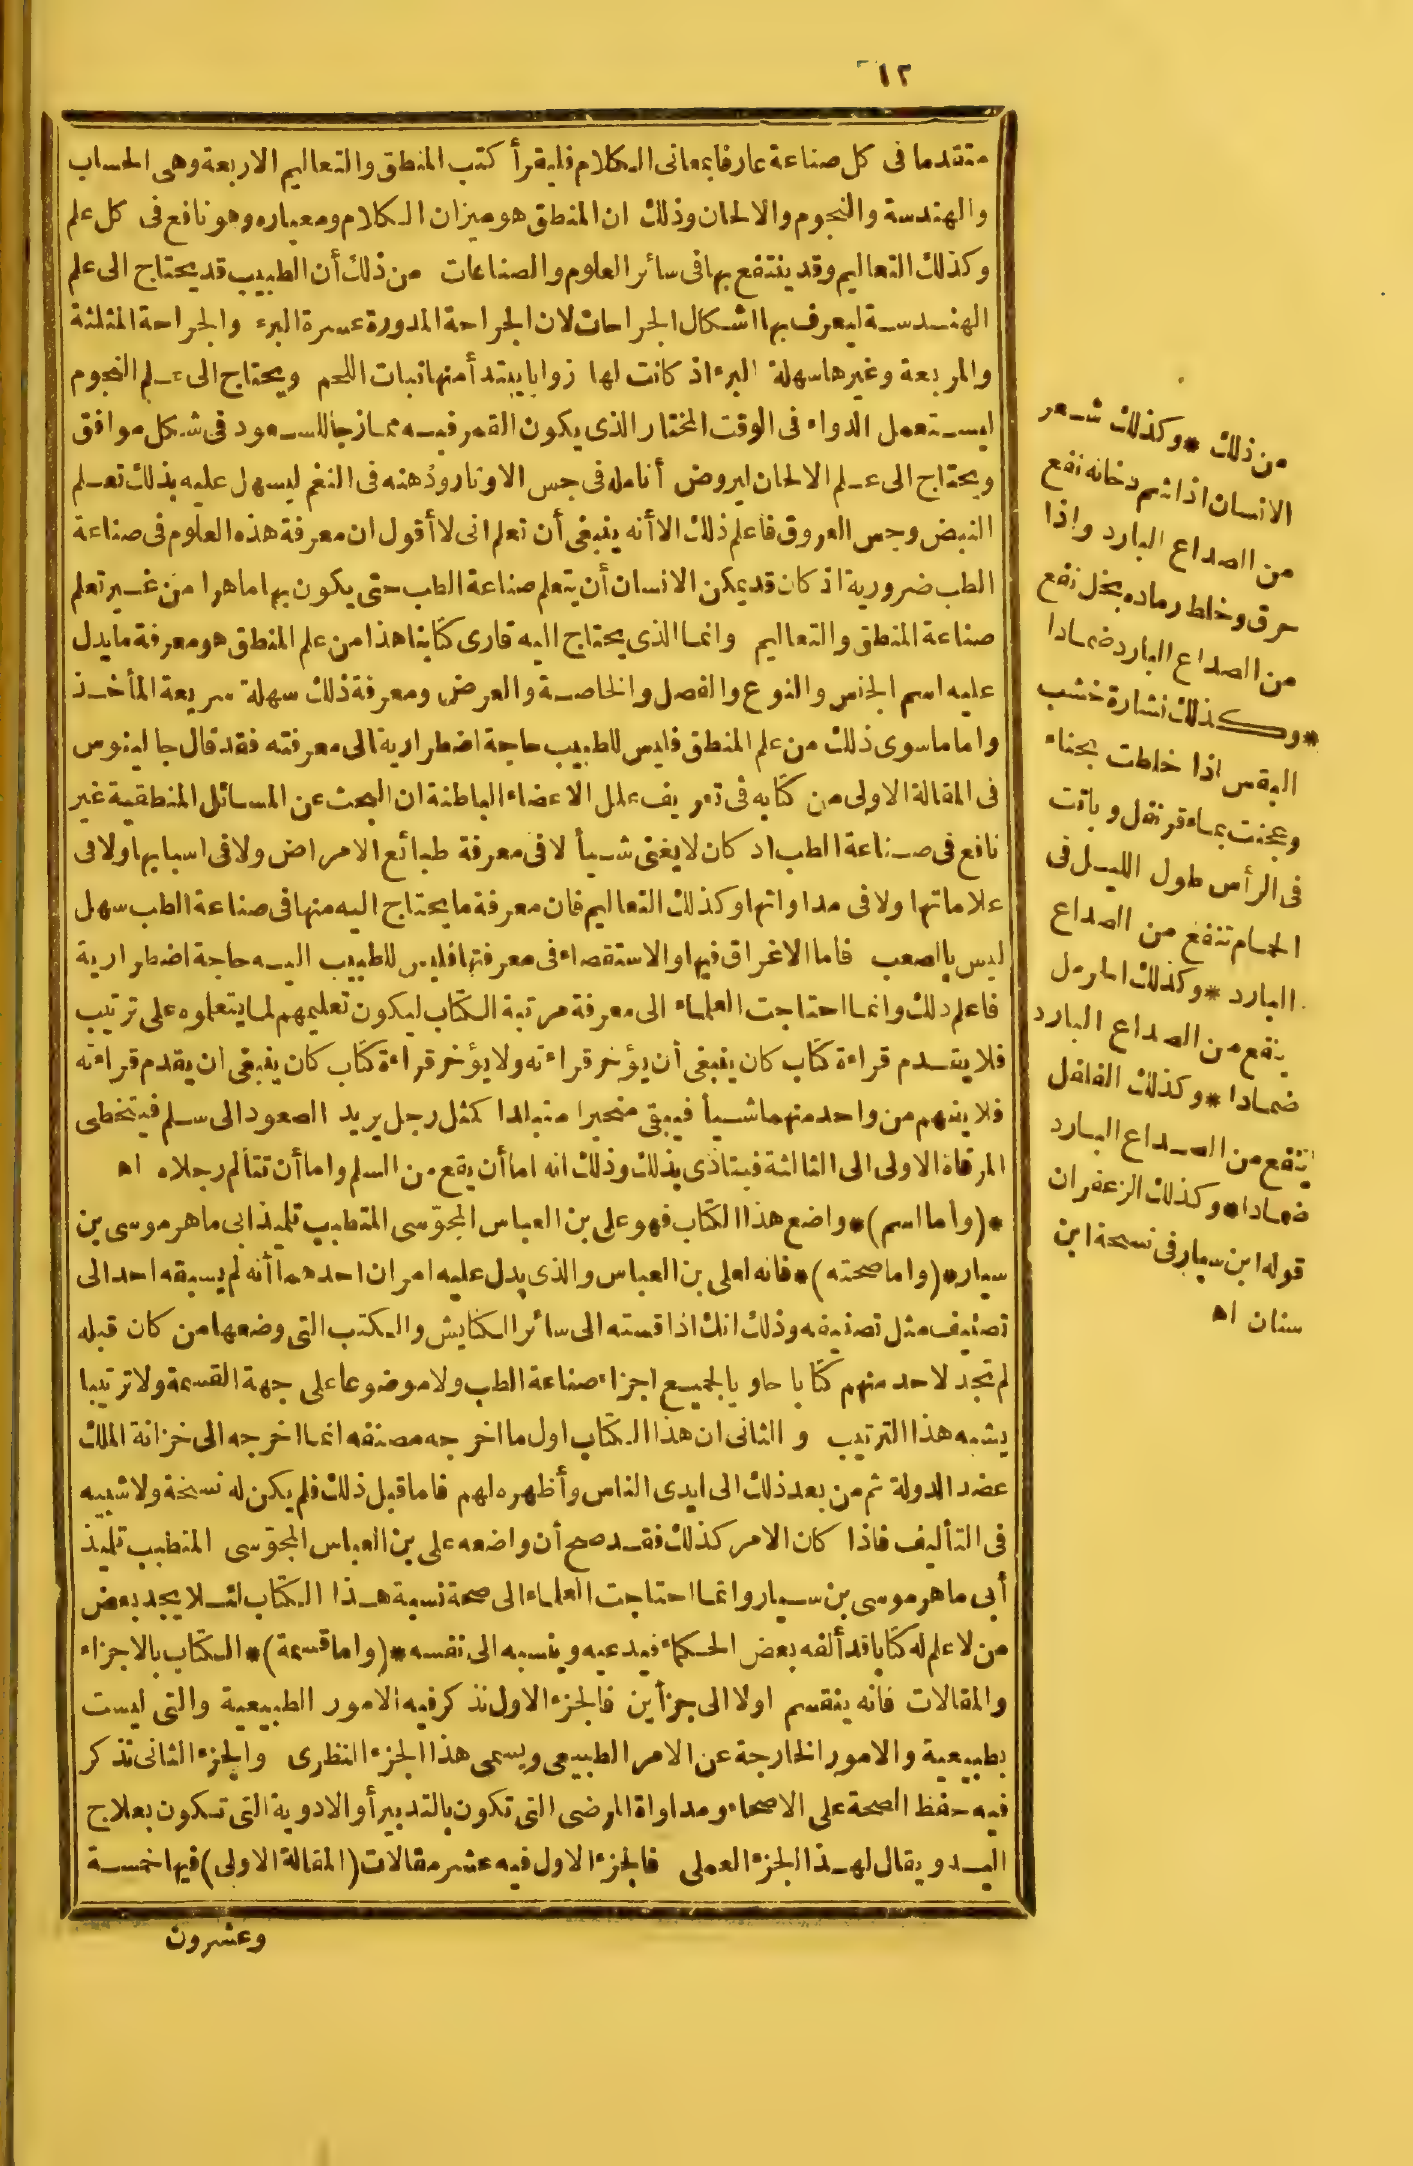 ١٢
متقدما فى كل صناعة عارفا بمعانى الكلام فليقرأ كتب المنطق والتعاليم الاربعة وهى الحساب
والهندسة والنجوم والالحان وذلك ان المنطق هو ميزان الكلام ومعياره وهو نافع فى كل علم
وكذلك التعاليم وقد ينتفع بها فى سائر العلوم والصناعات من ذلك أن الطبيب قد يحتاج الى علم
الهندسة ليعرف بها اشكال الجراحات لان الجراحة المدورة عسرة البرء والجراحة المثلثة
والمربعة وغيرها سهلة البرء اذ كانت لها زوايا يبتدأ منها نبات اللحم ويحتاج الى علم النجوم
ليستعمل الدواء فى الوقت المختار الذى يكون القمر فيه ممازجا للسعود فى شكل موافق
ويحتاج الى علم الالحان ليروض أنامله فى جس الاوتار وذهنه فى النغم ليسهل عليه بذلك تعلم
النبض وجس العروق فاعلم ذلك الا أنه ينبغى أن تعلم انى لا أقول ان معرفة هذه العلوم فى صناعة
الطب ضرورية اذ كان قد يمكن الانسان أن يتعلم صناعة الطب حتى يكون بها ماهرا من غير تعلم
صناعة المنطق والتعاليم وانما الذى يحتاج اليه قارى كتابنا هذا من علم المنطق هو معرفة ما يدل
عليه اسم الجنس والنوع والفصل والخاصة والعرض ومعرفة ذلك سهلة سريعة المأخذ
واما ما سوى ذلك من علم المنطق فليس للطبيب حاجة اضطرارية الى معرفته فقد قال جالينوس
فى المقالة الاولى من كتابه فى تعريف علل الاعضاء الباطنة ان البحث عن المسائل المنطقية غير
نافع فى صناعة الطب اد كان لا يغنى شيأ لا فى معرفة طبائع الامراض ولا فى اسبابها ولا فى
علاماتها ولا فى مداواتها وكذلك التعاليم فان معرفة ما يحتاج اليه منها فى صناعة الطب سهل
ليس بالصعب فاما الاغراق فيها والاستقصاء فى معرفتها فليس للطبيب اليه حاجة اضطرارية
فاعلم ذلك وانما احتاجت العلماء الى معرفة مرتبة الكتاب ليكون تعليمهم لما يتعلموه على ترتيب
فلا يقدم قراءة كتاب كان ينبغى أن يؤخر قراءته ولا يؤخر قراءة كتاب كان ينبغى ان يقدم قراءته
فلا يفهم من واحد منهما شيأ فيبقى متحيرا متبلدا كمثل رجل يريد الصعود الى سلم فيتخطى
المرقاة الاولى الى الثالثة فيتاذى بذلك وذلك انه اما أن يقع من السلم واما أن تتألم رجلاه اه
*(وأما اسم)* واضع هذا الكتاب فهو على بن العباس المجوّسى المتطبب تلميذ ابى ماهر موسى بن
سيار *(واما صحته)* فانه لعلى بن العباس والذى يدل عليه امران احدهما أنه لم يسبقه احد الى
تصنيف مثل تصنيفه وذلك انك اذا قسته الى سائر الكنايش والكتب التى وضعها من كان قبله
لم تجد لاحد منهم كتابا حاويا لجميع اجزاء صناعة الطب ولا موضوعا على جهة القسمة ولا ترتيبا
يشبه هذا الترتيب والثانى ان هذا الكتاب اول ما اخرجه مصنفه انما اخرجه الى خزانة الملك
عضد الدولة ثم من بعد ذلك الى ايدى الناس وأظهره لهم فاما قبل ذلك فلم يكن له نسخة ولا شبيه
فى التأليف فاذا كان الامر كذلك فقد صح أن واضعه على بن العباس المجوّسى المتطبب تلميذ
أبى ماهر موسى بن سيار وانما احتاجت العلماء الى صحة نسبة هذا الكتاب لئلا يجد بعض
من لا علم له كتابا قد ألفه بعض الحكماء فيدعيه وينسبه الى نفسه *(واما قسمة)* الكتاب بالاجزاء
والمقالات فانه ينقسم اولا الى جزأين فالجزء الاول نذكر فيه الامور الطبيعية والتى ليست
بطبيعية والامور الخارجة عن الامر الطبيعى ويسمى هذا الجزء النظرى والجزء الثانى نذكر
فيه حفظ الصحة على الاصحاء ومداواة المرضى التى تكون بالتدبير أو الادوية التى تكون بعلاج
اليد ويقال لهذا الجزء العملى فالجزء الاول فيه عشر مقالات (المقالة الاولى) فيها خمسة
وعشرون
من ذلك * وكذلك شعر
الانسان اذا شم دخانه نفع
من الصداع البارد واذا
حرق وخلط رماده بخل نفع
من الصداع البارد ضمادا
* وكذلك نشارة خشب
البقس اذا خلطت بحناء
وعجنت بماء قرنفل وباتت
فى الرأس طول الليل فى
الحمام تنفع من الصداع
البارد * وكذلك الحرمل
ينفع من الصداع البارد
ضمادا * وكذلك الفلفل
ينفع من الصداع البارد
ضمادا * وكذلك الزعفران
قوله ابن سيار فى نسخة ابن
سنان اه